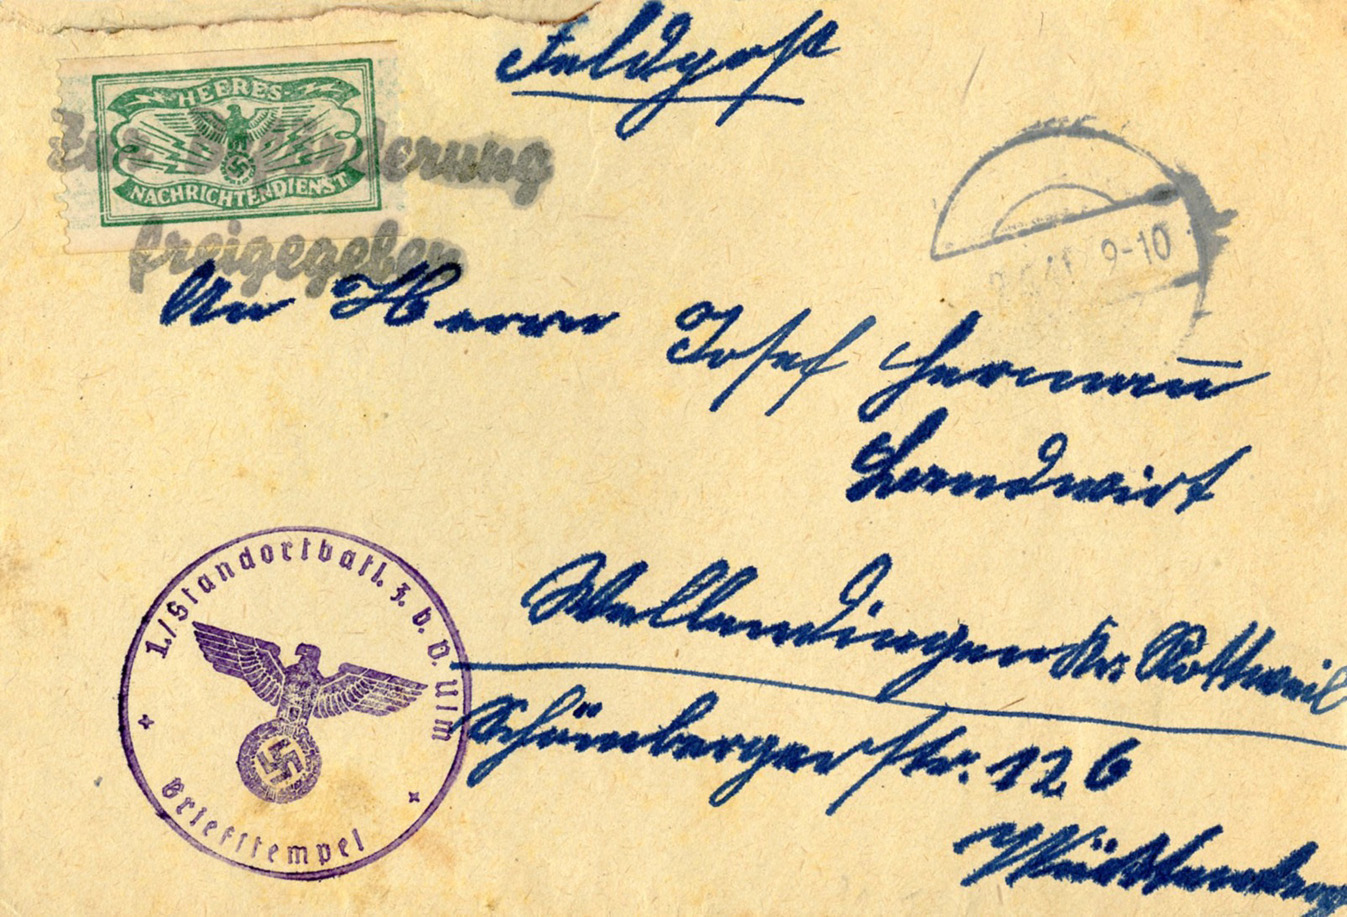 Feldpost
HEERES-
NACHRICHTENDIENST
Zur Beförderung
freigegeben
9-10
An Herrn Josef Herman̄
Landwirt
Wellendingen Kr. Rottweil
Schömbergerstr. 126
Württemberg
1./Standortbatl. z. b. V. Ulm
Briefstempel